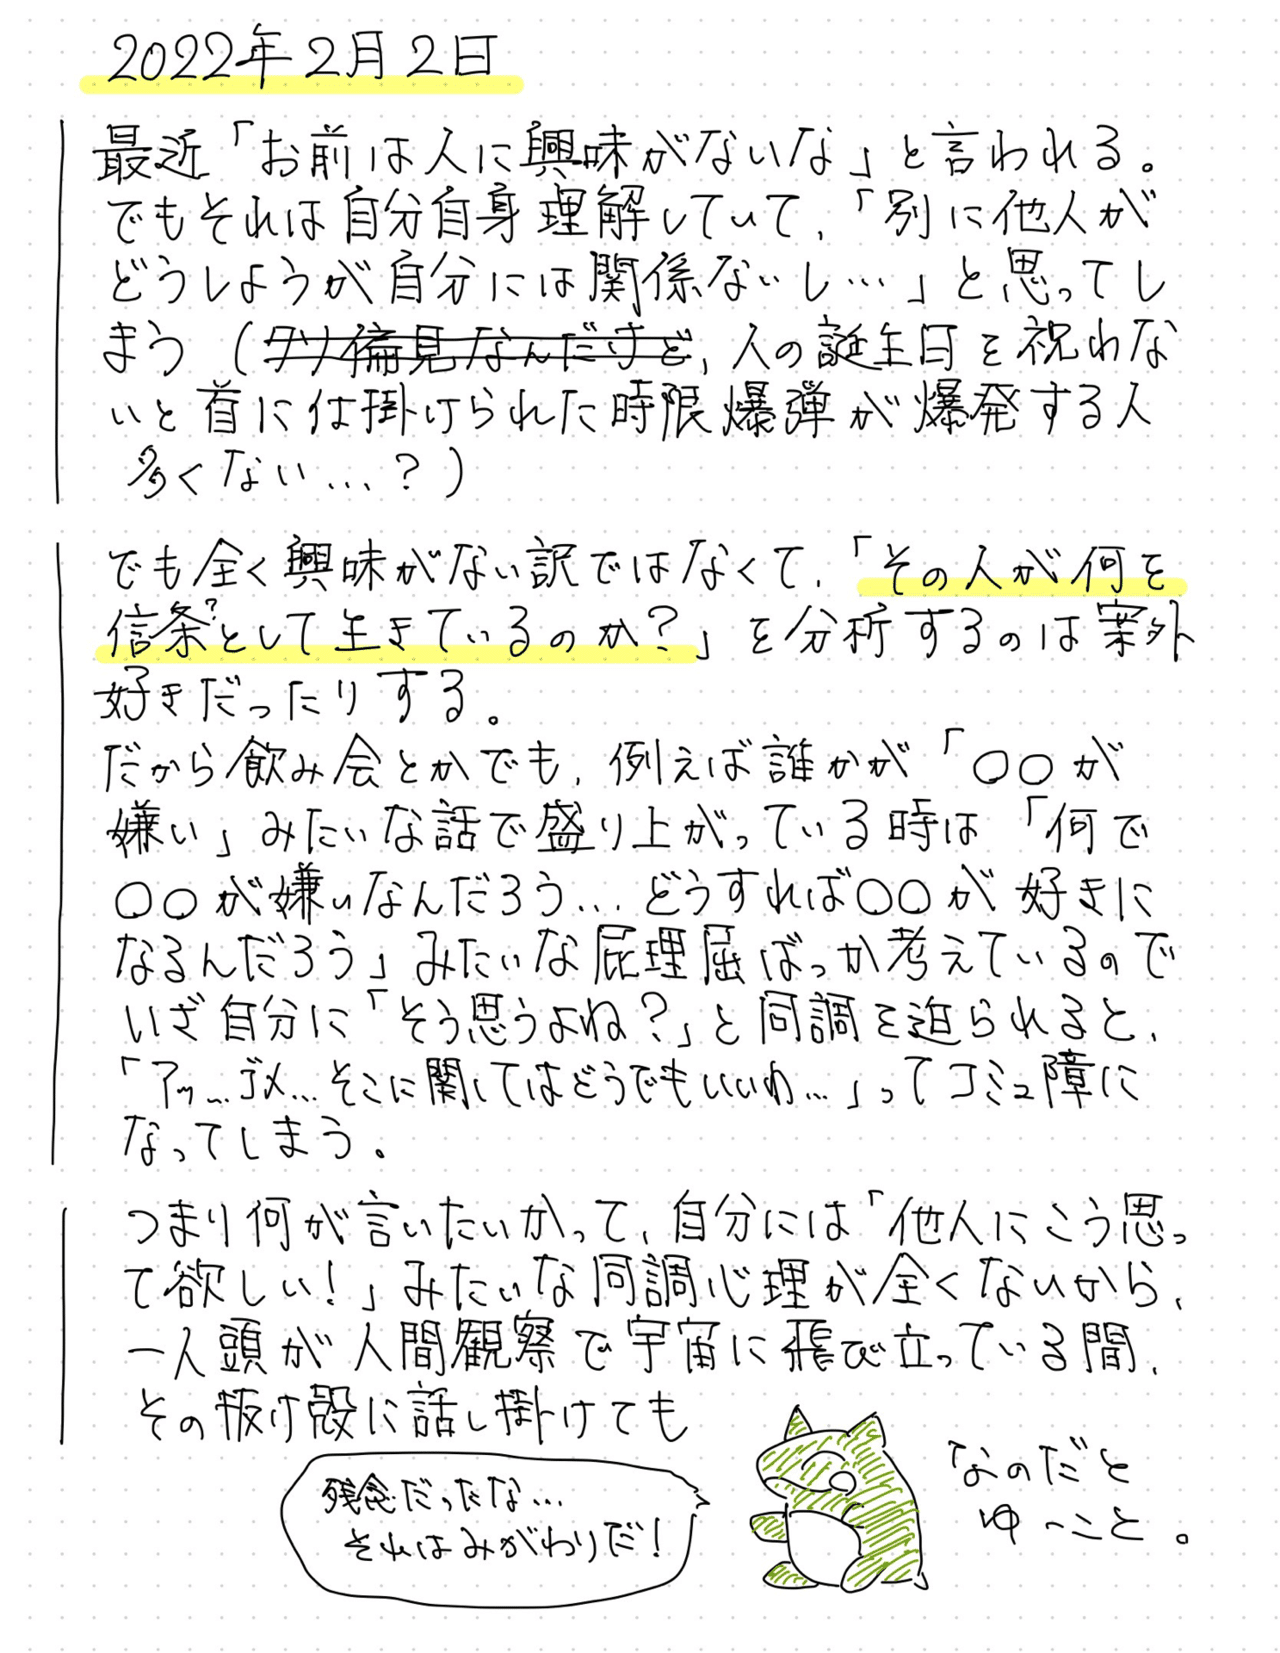 2022年2月2日
最近「お前は人に興味がないな」と言われる。
でもそれは自分自身理解していて、「別に他人が
どうしようが自分には関係ないし…」と思ってし
まう（クソ偏見なんだけど、人の誕生日を祝わな
いと首に仕掛けられた時限爆弾が爆発する人
多くない…？）
でも全く興味がない訳ではなくて、「その人が何を
信条?として生きているのか？」を分析するのは案外
好きだったりする。
だから飲み会とかでも、例えば誰かが「〇〇が
嫌い」みたいな話で盛り上がっている時は「何で
〇〇が嫌いなんだろう…どうすれば〇〇が好きに
なるんだろう」みたいな屁理屈ばっか考えているので
いざ自分に「そう思うよね？」と同調を迫られると、
「アッ…ゴメ…そこに関してはどうでもいいわ…」ってコミュ障に
なってしまう。
つまり何が言いたいかって、自分には「他人にこう思っ
て欲しい！」みたいな同調心理が全くないから、
一人頭が人間観察で宇宙に飛び立っている間、
その抜け殻に話し掛けても
残念だったな…
それはみがわりだ！
なのだと
ゆーこと。